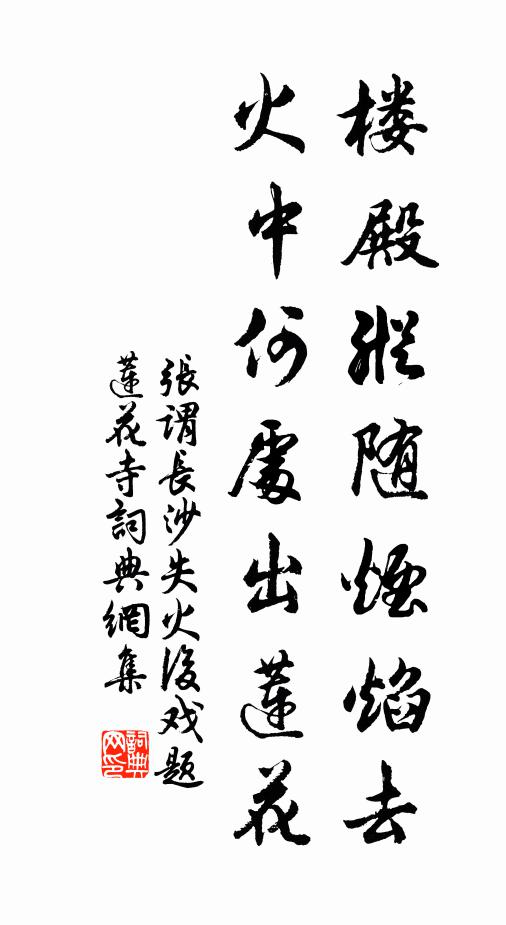 楼殿縱随煙焰去
火中何處出蓮花
張謂長沙失火後戏題
蓮花寺詞典網集
詞典
网印